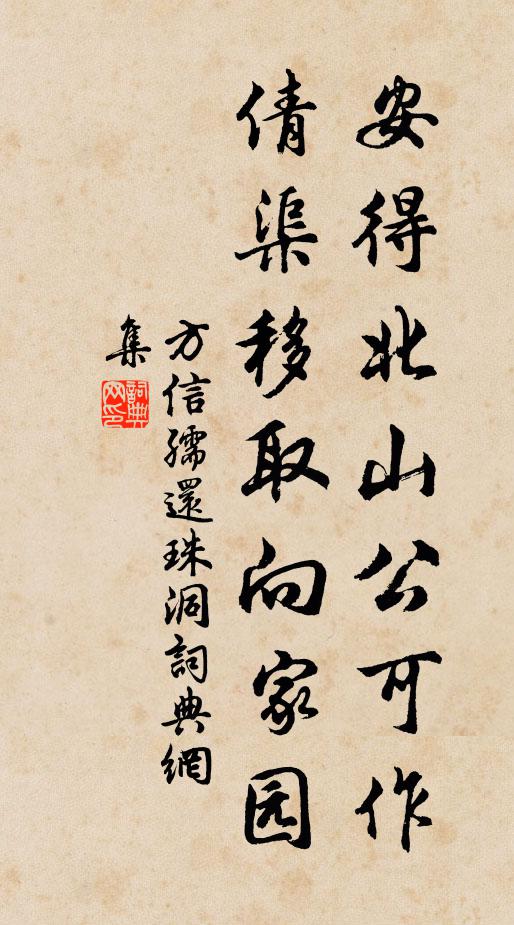 安得北山公可作
倩渠移取向家园
方信孺還珠洞詞典網
集
詞典網印